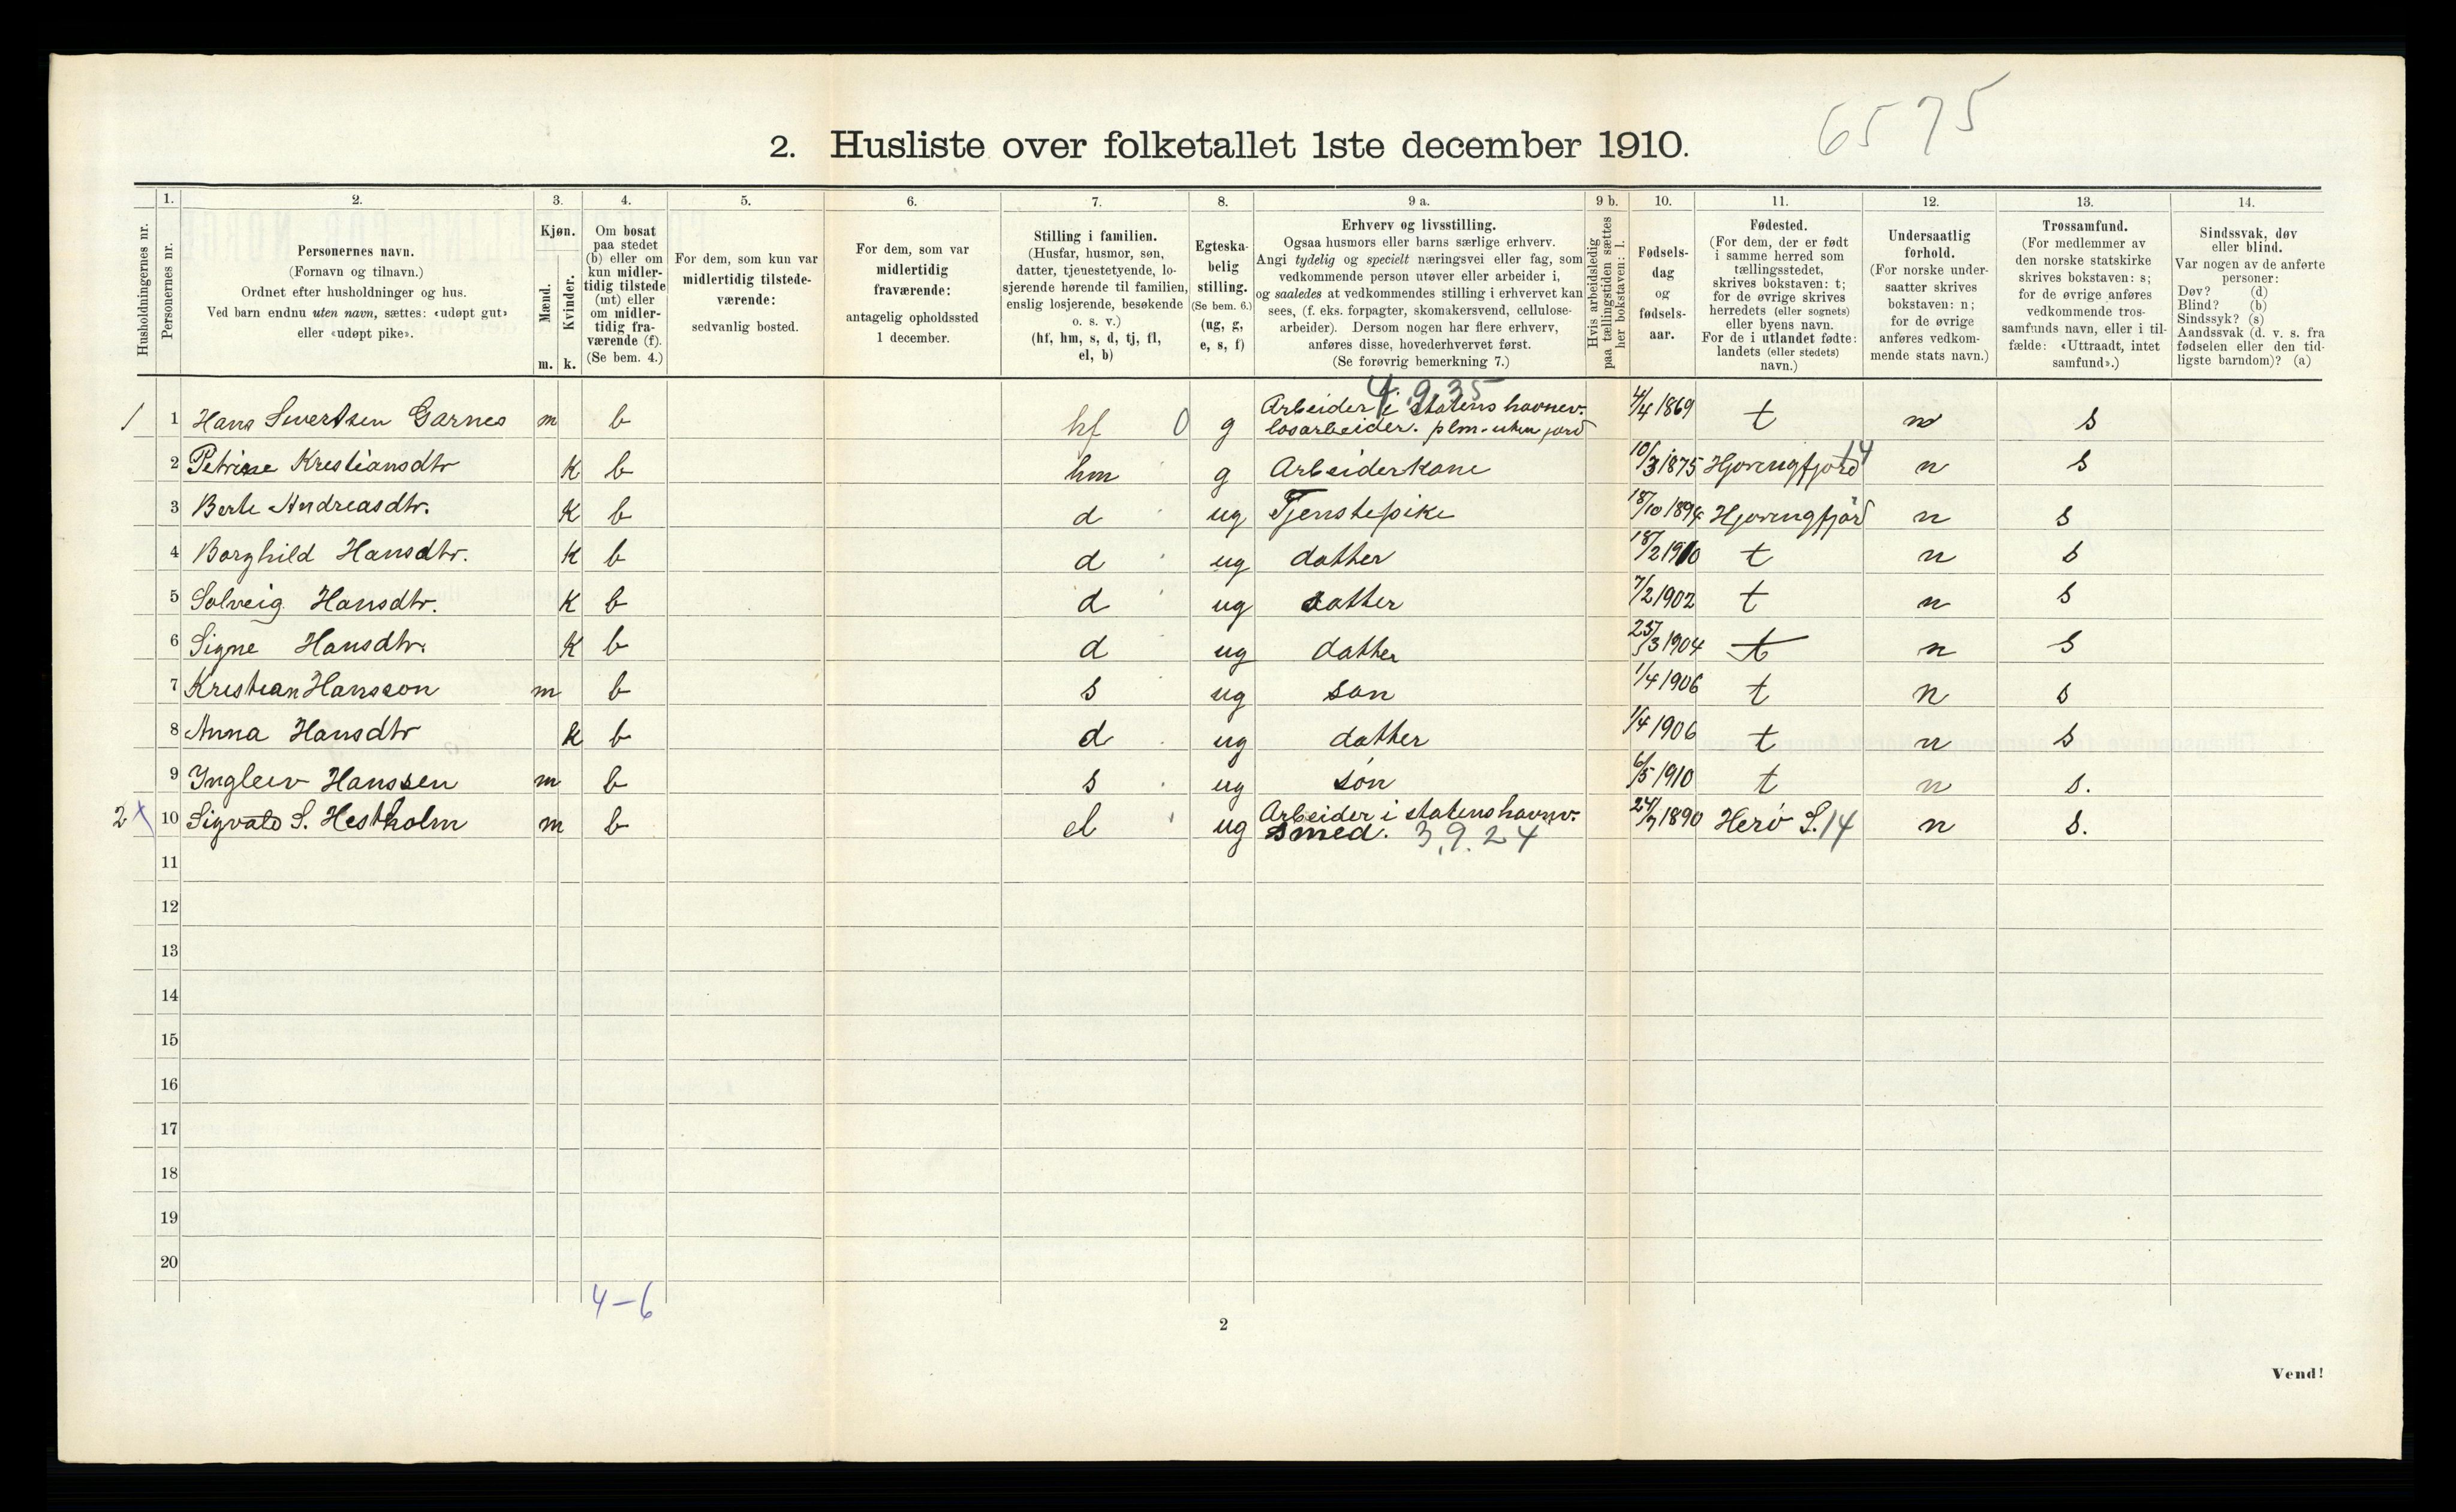 6575
2. Husliste over folketallet 1ste december 1910.
Husholdningernes nr.
1.
Personernes nr.
2.
Personernes navn.
(Fornavn og tilnavn.)
Ordnet efter husholdninger og hus.
Ved barn endnu uten navn, sættes: «udøpt gut»
eller «udøpt pike».
3.
Kjøn.
Mænd.
Kvinder.
m. k.
4.
Om bosat
paa stedet
(b) eller om
kun midler-
tidig tilstede
(mt) eller
om midler-
tidig fra-
værende (f).
(Se bem. 4.)
5.
For dem, som kun var
midlertidig tilstede-
værende:
sedvanlig bosted.
6.
For dem, som var
midlertidig
fraværende:
antagelig opholdssted
1 december.
7.
Stilling i familien.
(Husfar, husmor, søn,
datter, tjenestetyende, lo-
sjerende hørende til familien,
enslig losjerende, besøkende
o. s. v.)
(hf, hm, s, d, tj, fl,
el, b)
8.
Egteska-
belig
stilling.
(Se bem. 6.)
(ug, g,
e, s, f)
9 a.
Erhverv og livsstilling.
Ogsaa husmors eller barns særlige erhverv.
Angi tydelig og specielt næringsvei eller fag, som
vedkommende person utøver eller arbeider i,
og saaledes at vedkommendes stilling i erhvervet kan
sees, (f. eks. forpagter, skomakersvend, cellulose-
arbeider). Dersom nogen har flere erhverv,
anføres disse, hovederhvervet først.
(Se forøvrig bemerkning 7.)
9 b.
Hvis arbeidsledig
paa tællingstiden sættes
her bokstaven: l.
10.
Fødsels-
dag
og
fødsels-
aar.
11.
Fødested.
(For dem, der er født
i samme herred som
tællingsstedet,
skrives bokstaven: t;
for de øvrige skrives
herredets (eller sognets)
eller byens navn.
For de i utlandet fødte:
landets (eller stedets)
navn.)
12.
Undersaatlig
forhold.
(For norske under-
saatter skrives
bokstaven: n;
for de øvrige
anføres vedkom-
mende stats navn.)
13.
Trossamfund.
(For medlemmer av
den norske statskirke
skrives bokstaven: s;
for de øvrige anføres
vedkommende tros-
samfunds navn, eller i til-
fælde: «Uttraadt, intet
samfund».)
14.
Sindssvak, døv
eller blind.
Var nogen av de anførte
personer:
Døv? (d)
Blind? (b)
Sindssyk? (s)
Aandssvak (d. v. s. fra
fødselen eller den tid-
ligste barndom)? (a)
4.9.35
1 1 Hans Sivertsen Garnes m b hf 0 g Arbeider i statens havnev. 4/4 1869 t n s
losarbeider. plm. uten jord
2 Petrine Krestiansdtr K b hm g Arbeiderkone 10/3 1875 Hjørungfjord 14 n s
3 Berte Andreasdtr. K b d ug Tjenstepike 18/10 1894 Hjørungfjord n s
4 Borghild Hansdtr. K b d ug datter 18/2 1910 t n s
5 Solveig Hansdtr. K b d ug datter 7/2 1902 t n s
6 Signe Hansdtr. K b d ug datter 25/3 1904 t n s
7 Krestian Hansson m b s ug søn 1/4 1906 t n s
8 Anna Hansdtr K b d ug datter 1/4 1906 t n s
9 Ingleiv Hanssen m b s ug søn 6/5 1910 t n s.
2 X 10 Sigvald S. Hestholm m b el ug Arbeider i statens havnv. 24/7 1890 Herö S. 14 n s.
smed. 3.9.24
11
12
13
14
15
16
17
18
19
20
4-6
2
Vend!